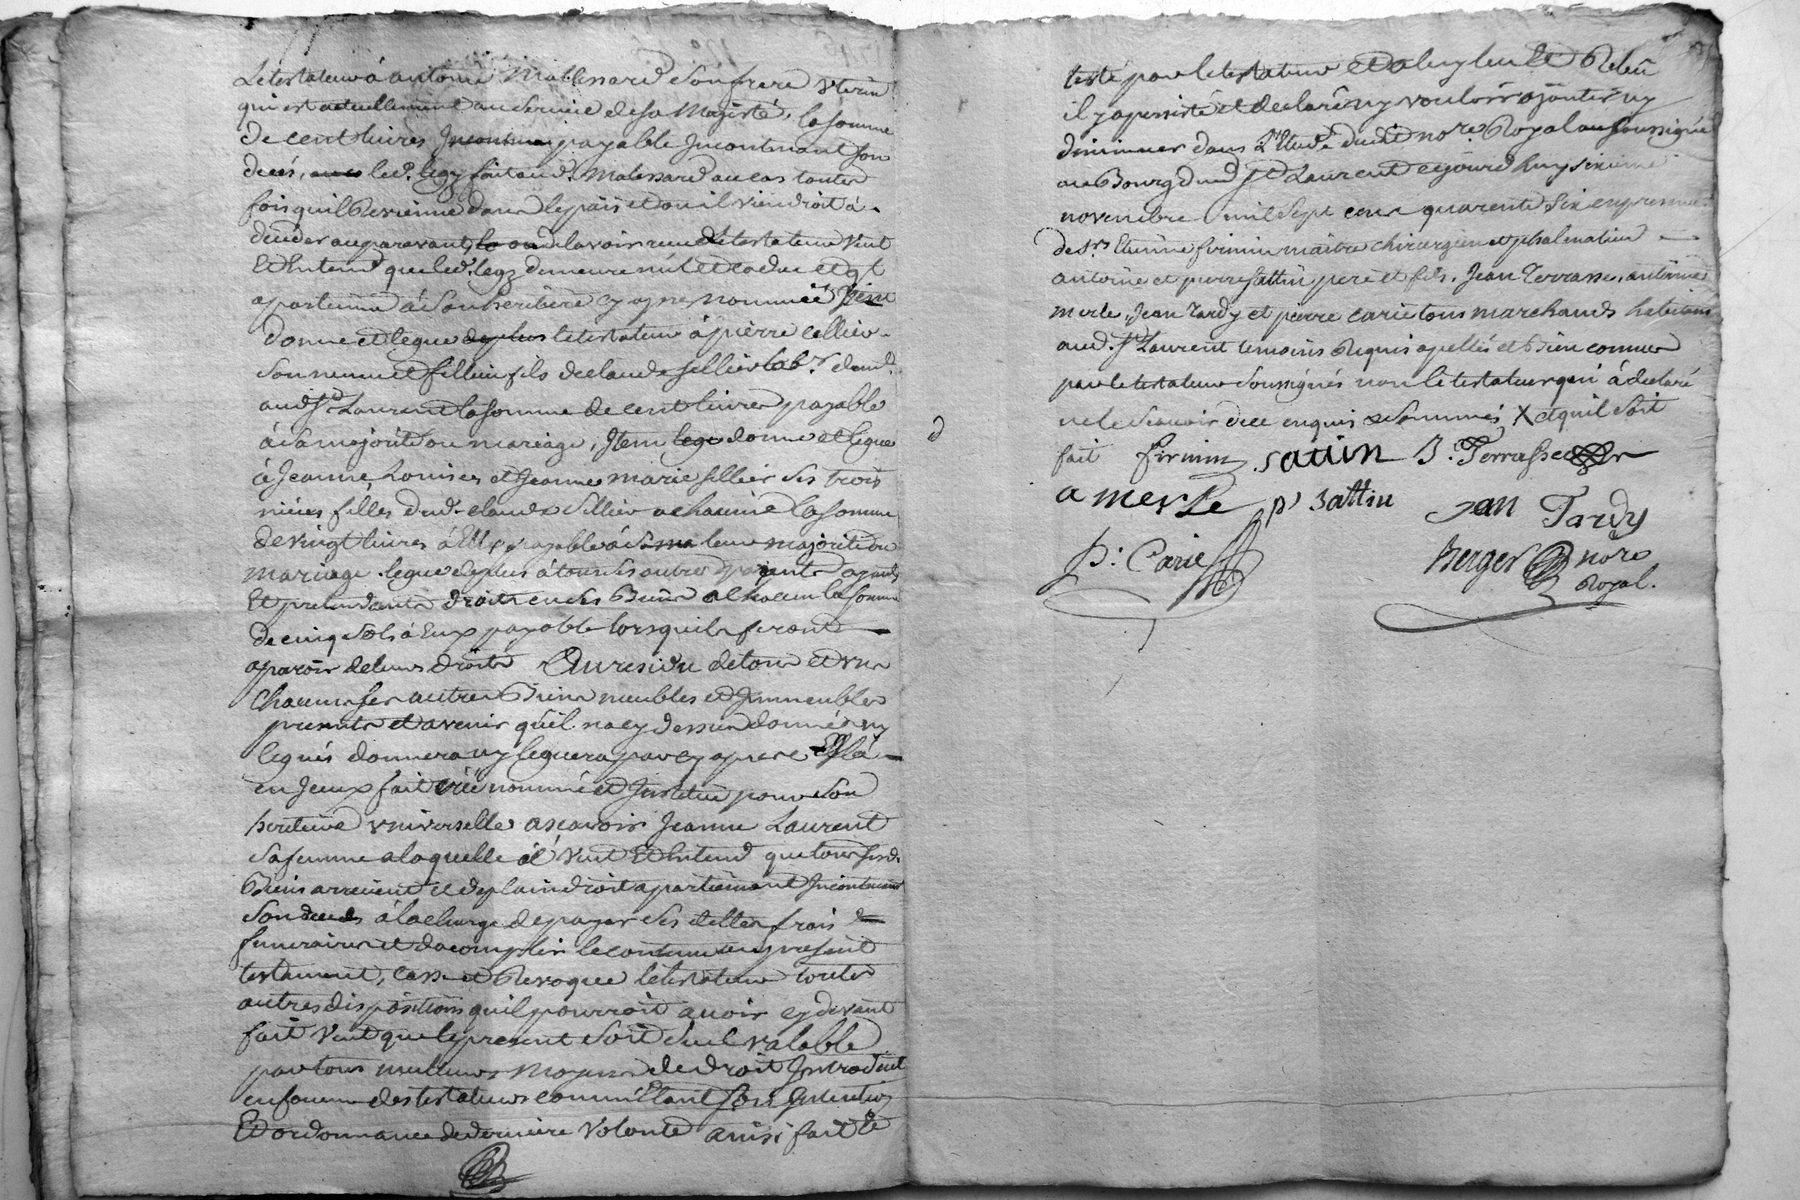 Le testateur à antoine Malessard son frere vterin
qui est actuellement au service de sa Majesté, la somme
de cent livres payable Incontinant son
decés, led. legz fait aud. Malessard au cas toutes
fois quil Revienne dans le païs et ou il viendroit à
deceder auparavant delavoir reveu le testateur veut
Et Entend que led. legz demeure nul et caduc et qt
apartienne à son heritiere cy apres nommée Item
donne et legue deplus le testateur à pierre cellier
son neveu et filleiu fils de claude sellier labr. demt.
aud. st Laurent la somme de cent livres payable
à sa majorité ou mariage, Item donne et legue
à Jeanne, Louise et Jeanne marie sellier ses trois
niéces filles dud. claude sellier a chacune la somme
de vingt livres à Elles payable à leur majorité ou
mariage. legue deplus à tous ses autres parents ayants
Et pretendants droits en ses Biens a chacun la somme
de cinq sols à Eux payable lorsquils feront
aparoir de leurs droits Au residu de tous et vns
Chacuns ses autres Biens meubles et Immeubles
presents et avenir quil na cy dessus donné ny
legués donnera ny leguera par cy apres Il a
fait créé nommé et Institué pour son
heritiere vniverselle ascavoir Jeanne Laurent
sa femme a laquelle il veut Et Entend que tous sesd.
Biens arrivent et de plain droit apartiennent Incontinant
son deceds à la charge de payer ses dettes frais
funeraires et dacomplir le contenu au present
testament, casse et Revoque le testateur toutes
autres dispositions quil pourroit avoir cy devant
fait veut que le present soit seul valable
par tous meilleurs moyens de droit Introduit
en faveur des testateurs comme Etant son Intention
Et ordonnance de derniere volonté ainsi fait
testé par le testateur et a luy leu et Releu
il y a persisté et declaré ny vouloir ajouter ny
diminuer dans Letude dudit nore Royal soussigné
au Bourg dud. st Laurent cejourdhuy sixieme
novembre mil sept cens quarente six en presence
de srs. Etienne firmin maitre chirurgien et phalmatien
antoine et pierre sattin pere et fils, Jean Terrasse, antoine
merle, Jean Tardy et pierre carie tous marchands habitans
aud. st Laurent temoins Requis apellés et Bien connus
par le testateur soussignés non le testateur qui à declaré
ne le scavoir de ce enquis et sommé, X et quil soit
fait firmin sattin J. Terrasse
a merle p' sattin Jean Tardy
p: Carie Berger nore
Royal.